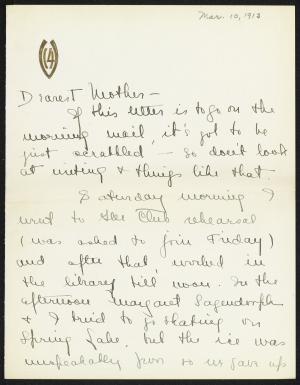 Mar. 10, 1912
14
Dearest Mother –
If this letter is to go on the
morning mail it's got to be
just scrabbled – so don't look
at writing & things like that.
Saturday morning I
went to Glee Club rehearsal
(was asked to join Friday)
and after that worked in
the library till noon. In the
afternoon Margaret Sagendorph
& I tried to go skating on
Spring Lake, but the ice was
unspeakably poor so we gave up